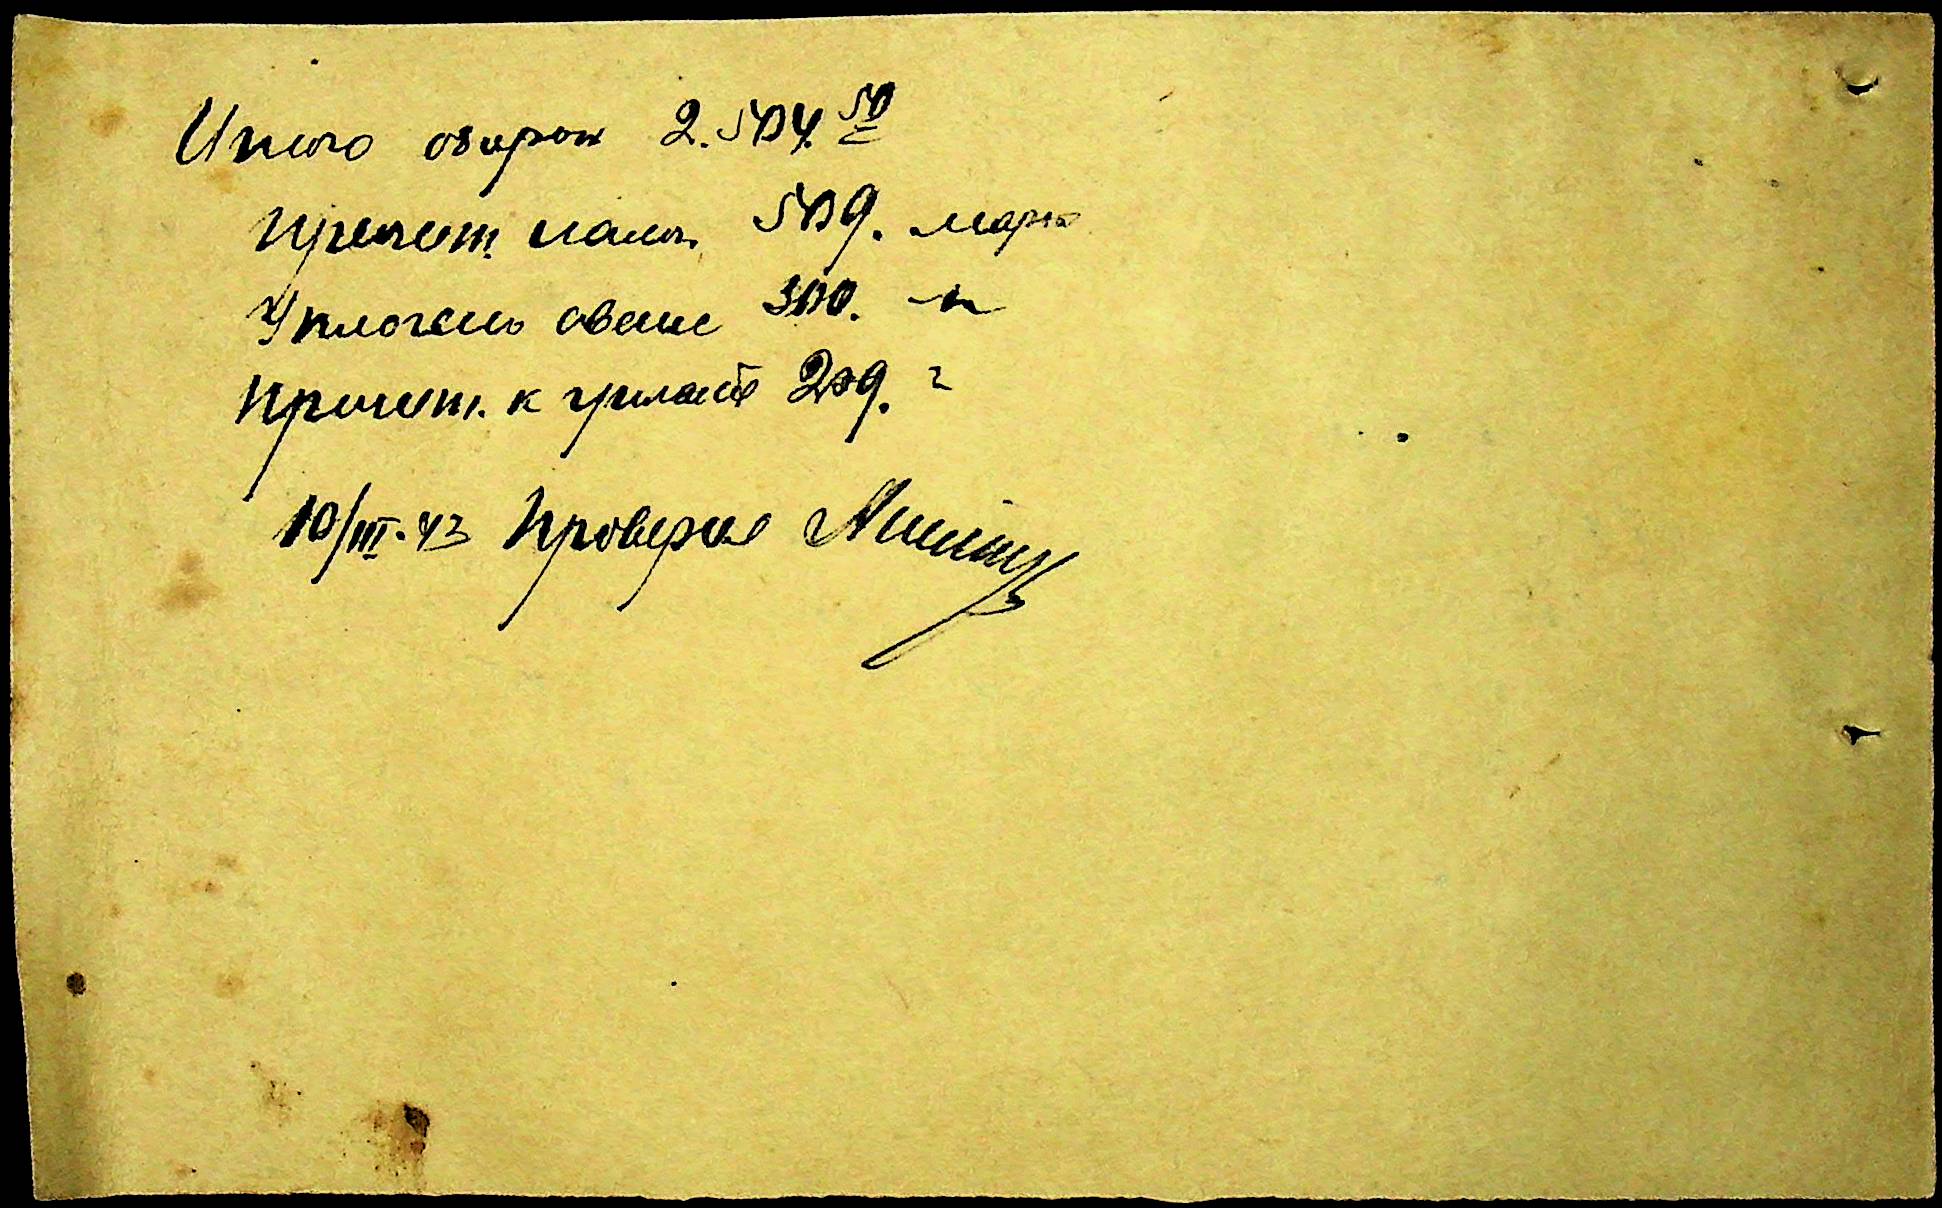 Итого оборот 2.504.50
Причит. налог. 509. марк
Уплочено аванс 300. -"-
Причит. к уплате 209. "
10/III.43 Проверил